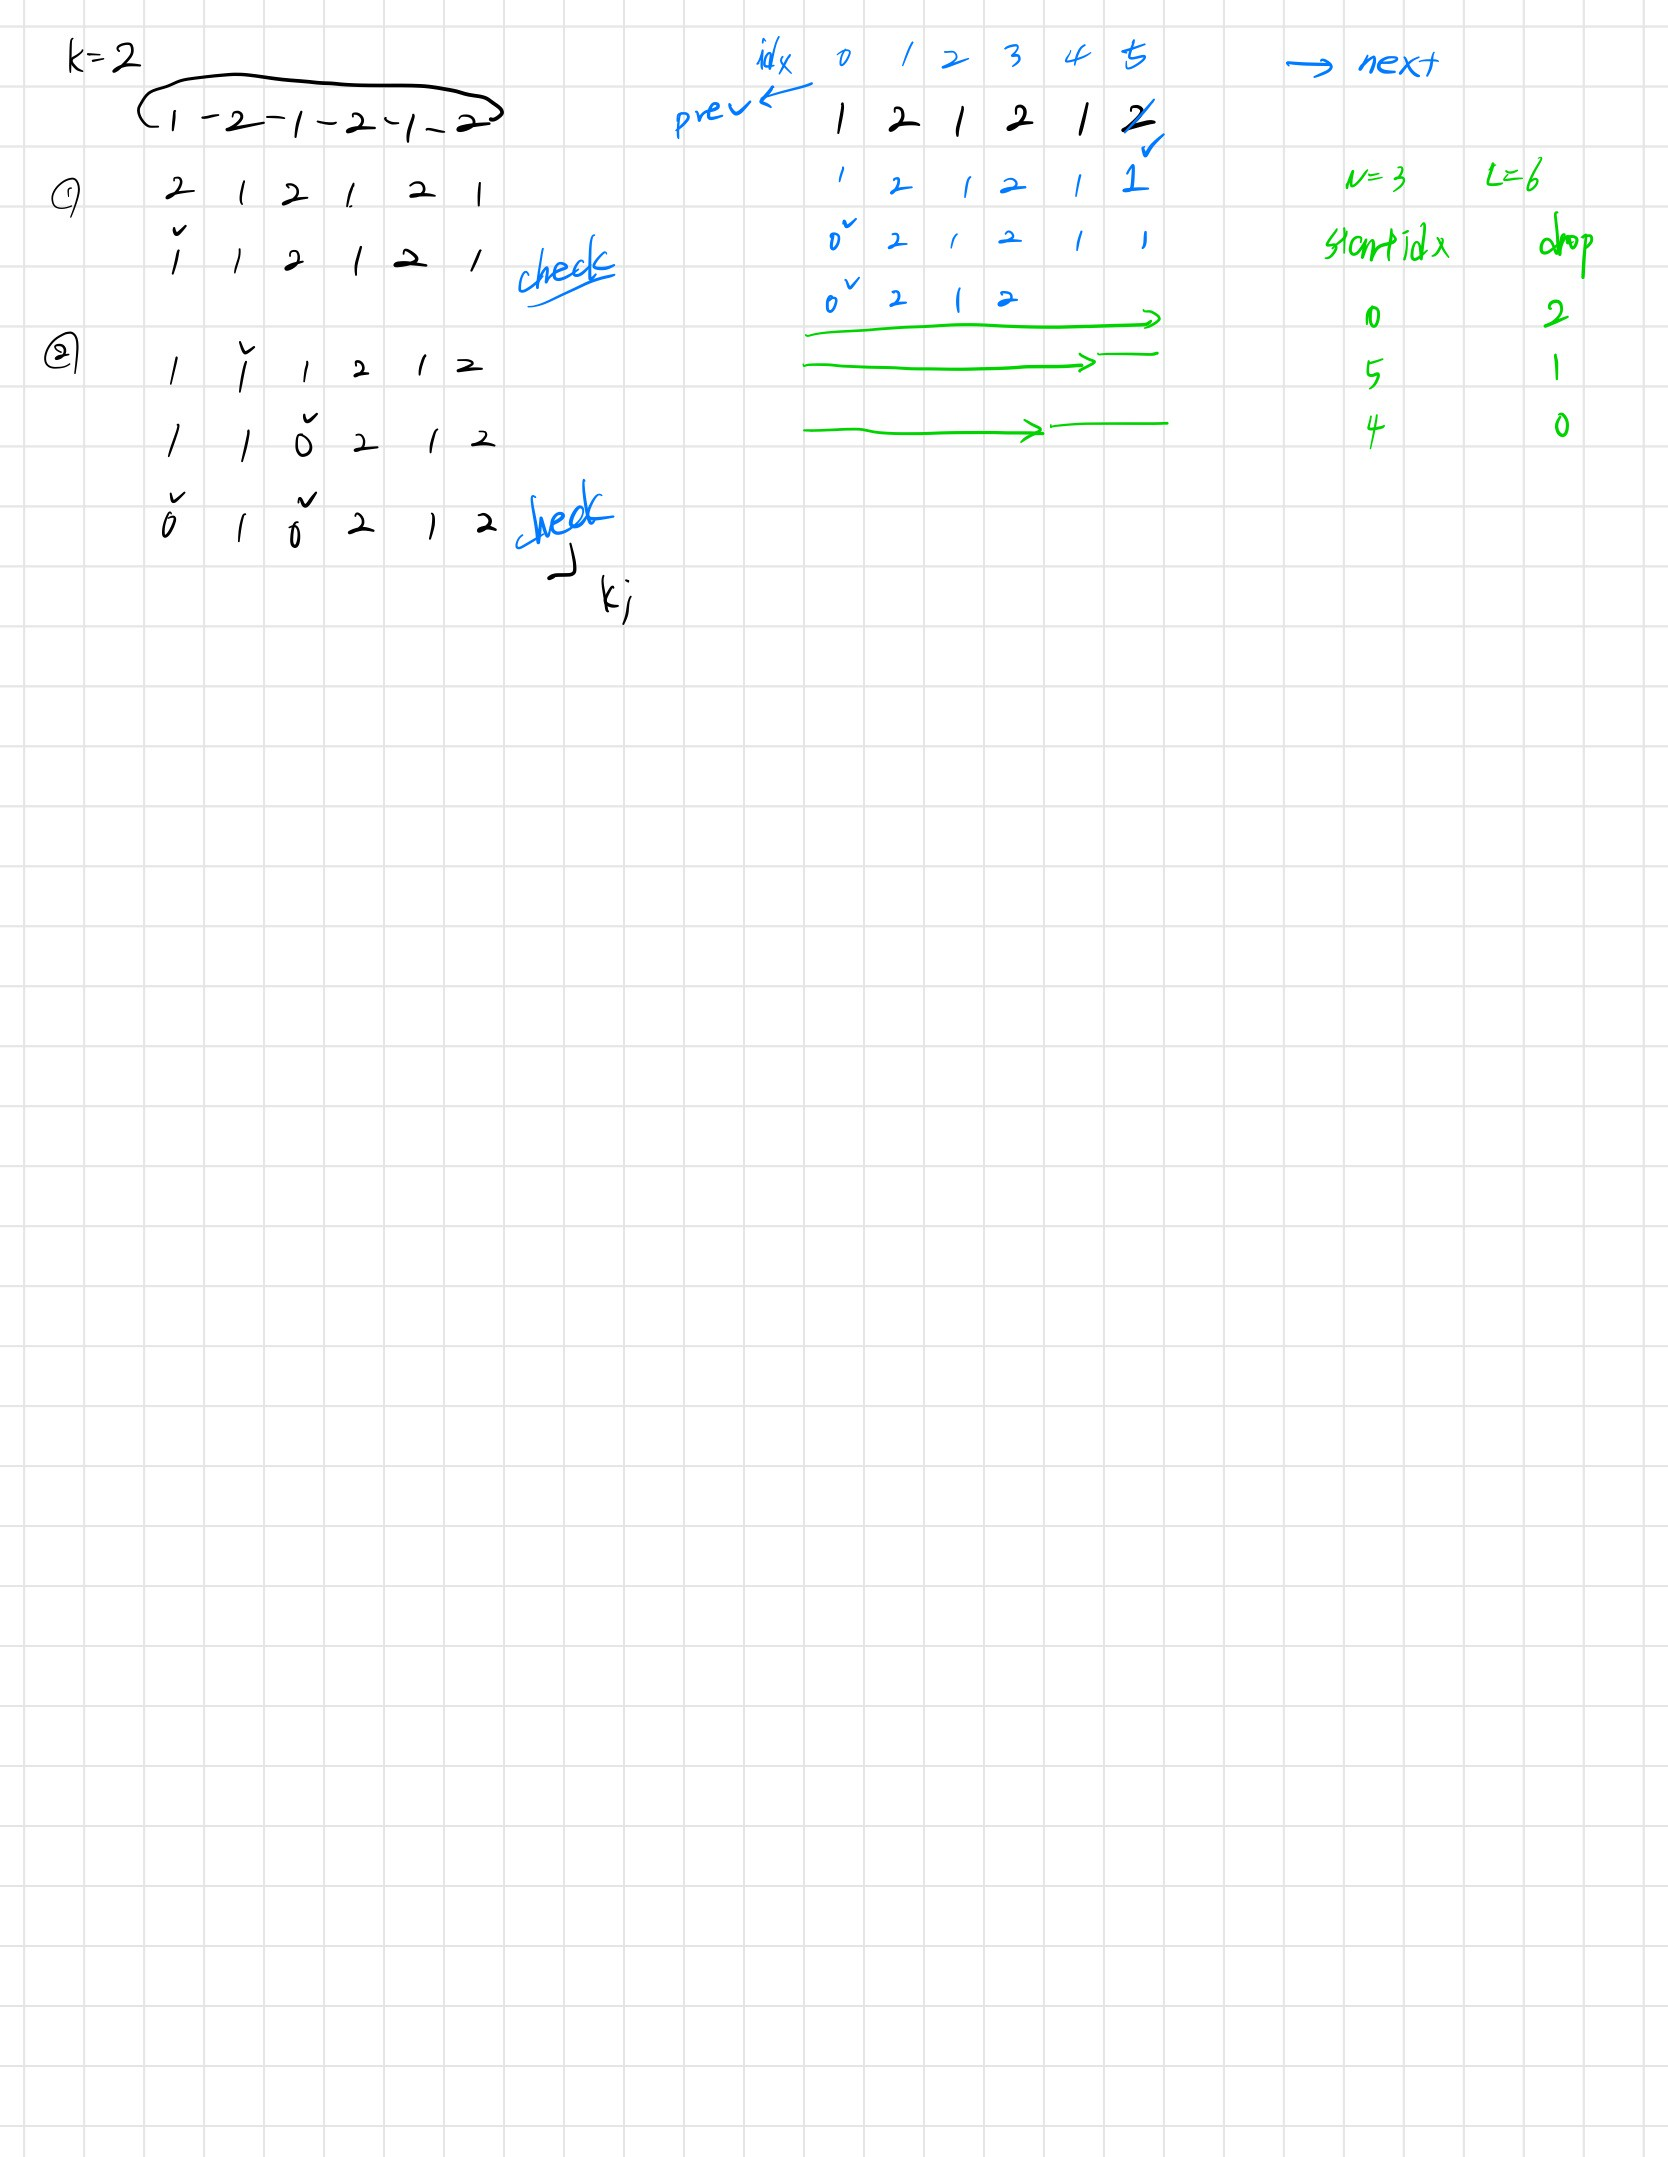 k=2
1-2-1-2-1-2
① 2 1 2 1 2 1
1 1 2 1 2 1 check
② 1 1 1 2 1 2
1 1 0 2 1 2
0 1 0 2 1 2 check
k;
idx 0 1 2 3 4 5 → next
prev ← 1 2 1 2 1 2
1 2 1 2 1 1
0 2 1 2 1 1
0 2 1 2
N=3 L=6
start idx drop
0 2
5 1
4 0